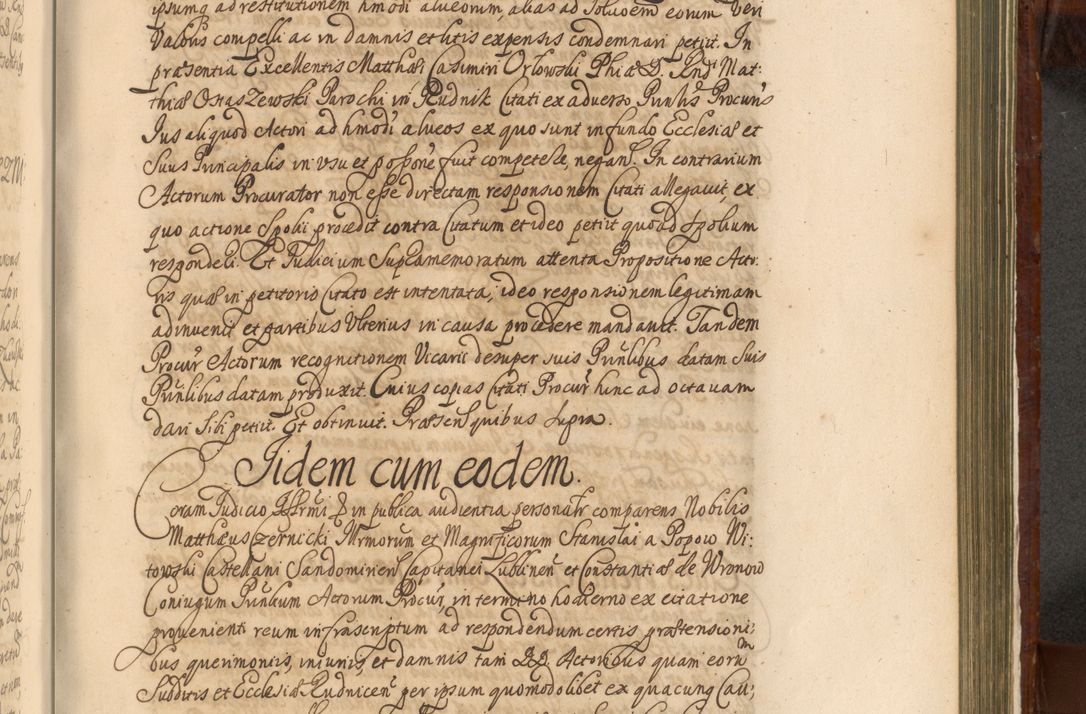 ipsumq ad restitutionem hmodi alueorum, alias ad Solvoem eorum Veri
Valoris compelli ac in damnis et litis expensis condemnari petijt. In
præsentia Excellentis Matthæi Casimiri Orłowski Phiæ D. Rndi Mat:
thiæ Ostaszewski Parochi in Rudnik Citati ex adverso Pnnlis Procuris
Jus aliquod Actori ad hmodi alueos ex quo sunt in fundo Ecclesiæ et
Suus Principalis in usu et possone fuit competere, negans. In contrarium
Actorum Procurator non esse directam responsionem Citati allegavit, ex
quo actione Spolii procedit contra Citatum et ideo petijt quoad spolium
responderi. Et Judicium Supramemoratum attenta Propositione Acto:
ris quæ in petitorio Citato est intentata, ideo responsionem legitimam
adinvenit et partibus Ulterius in causa procedere mandavit. Tandem
Procur Actorum recognitionem Vicarii desuper suis Prinlibus datam Suis
Prinlibus datam produxit. Cuius copias Citati Procur hinc ad octauam
dari Sibi petijt. Et obtinuit. Præsens quibus supra.
Iidem cum eodem.
Coram Judicio in publica audientia personalr comparens Nobilis
Matthæus Czernicki Mrmorum et Magnificorum Stanislai a Popow Wi:
towski Castellani Sandomiriens Capitanei Lublinens et Constantiæ de Wronow
Coniugum Prinlium Actorum Procur, in termino hodierno ex citatione
prouenienti reum infrascriptum ad respondendum certis prætensioni:
bus querimoniis, iniuriis, et damnis tam DD. Actoribus quam eorum
Subditis et Ecclesiæ Rudnicens per ipsum quomodolibet ex quacunq Cau: